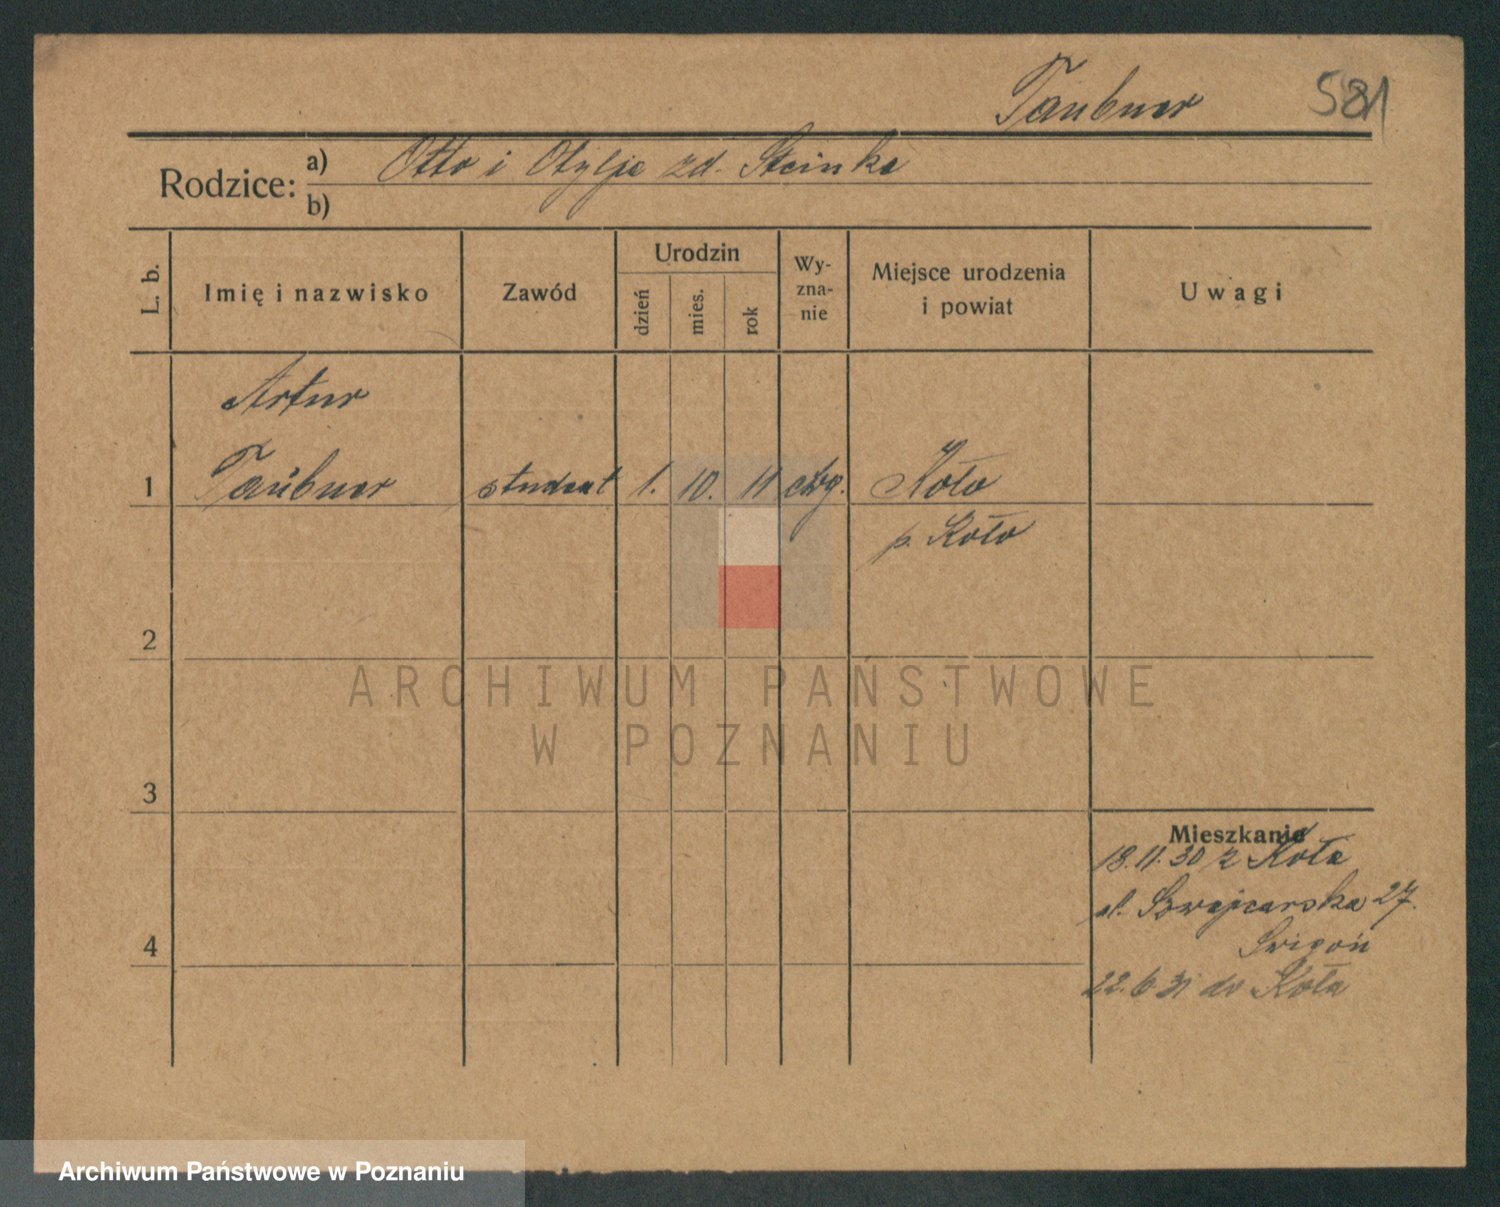 Taubner 581
Rodzice: a) Otto i Otylja zd. Steinke
b)
L. b. Imię i nazwisko Zawód Urodzin dzień mies. rok Wy-zna-nie Miejsce urodzenia i powiat Uwagi
Artur
1 Taübner student 1. 10. 11 ewg. Koło
p. Koło
2
ARCHIWUM PAŃSTWOWE
W POZNANIU
3
Mieszkanie
18.11.30 z Koła
ul. Szwajcarska 27.
4
22.6.31 do Koła
Archiwum Państwowe w Poznaniu